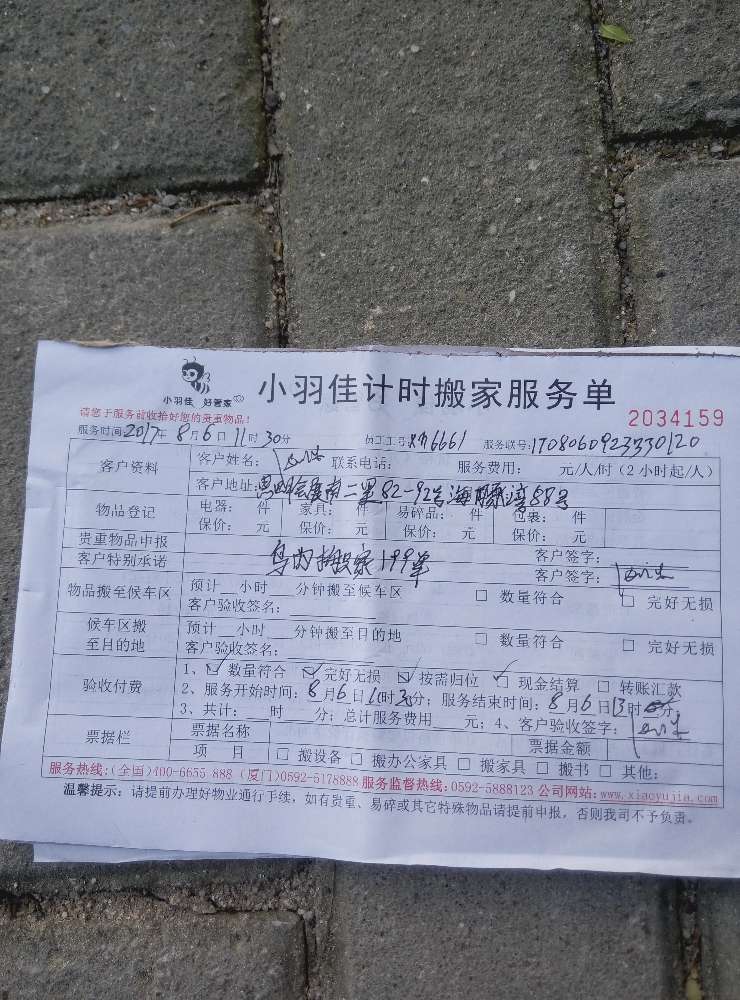 小羽佳 好管家
小羽佳计时搬家服务单
请您于服务前收拾好您的贵重物品！
2034159
服务时间2017年8月6日11时30分 员工工号 6661 服务联号:1708060923330120
客户资料 客户姓名： 联系电话： 服务费用： 元/人/时（2小时起/人）
客户地址: 思明会展南二里82-92号海 湾58号
物品登记 电器： 件 家具： 件 易碎品： 件 包裹： 件
保价： 元 保价： 元 保价： 元 保价： 元
贵重物品申报 客户签字：
客户特别承诺 岛内搬家199单 客户签字：
物品搬至候车区 预计 小时 分钟搬至候车区 □ 数量符合 □ 完好无损
客户验收签名：
候车区搬至目的地 预计 小时 分钟搬至目的地 □ 数量符合 □ 完好无损
客户验收签名：
验收付费 1、☑ 数量符合 ☑ 完好无损 ☑ 按需归位 ☑ 现金结算 □ 转账汇款
2、服务开始时间：8月6日11时30分；服务结束时间：8月6日13时 分；
3、共计： 时 分；总计服务费用 元；4、客户验收签字：
票据栏 票据名称 票据金额
项 目 □ 搬设备 □ 搬办公家具 □ 搬家具 □ 搬书 □ 其他：
服务热线：(全国)400-6655 888 (厦门)0592-5178888 服务监督热线：0592-5888123 公司网站：www.xiaoyujia.com
温馨提示：请提前办理好物业通行手续，如有贵重、易碎或其它特殊物品请提前申报，否则我司不予负责。